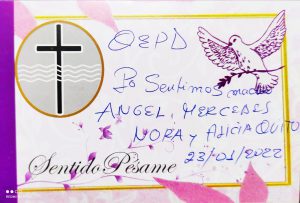 QEPD
Lo Sentimos mucho
ANGEL, MERCEDES
NORA y ALICIA QUITO
23/01/2022
Sentido Pésame